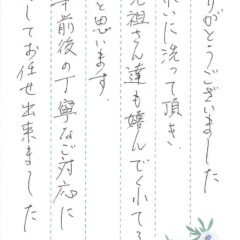 りがとうございました
れいに洗って頂き、
先祖さん達も嬉んでくれてる
と思います。
前後の丁寧なご対応に
してお任せ出来ました